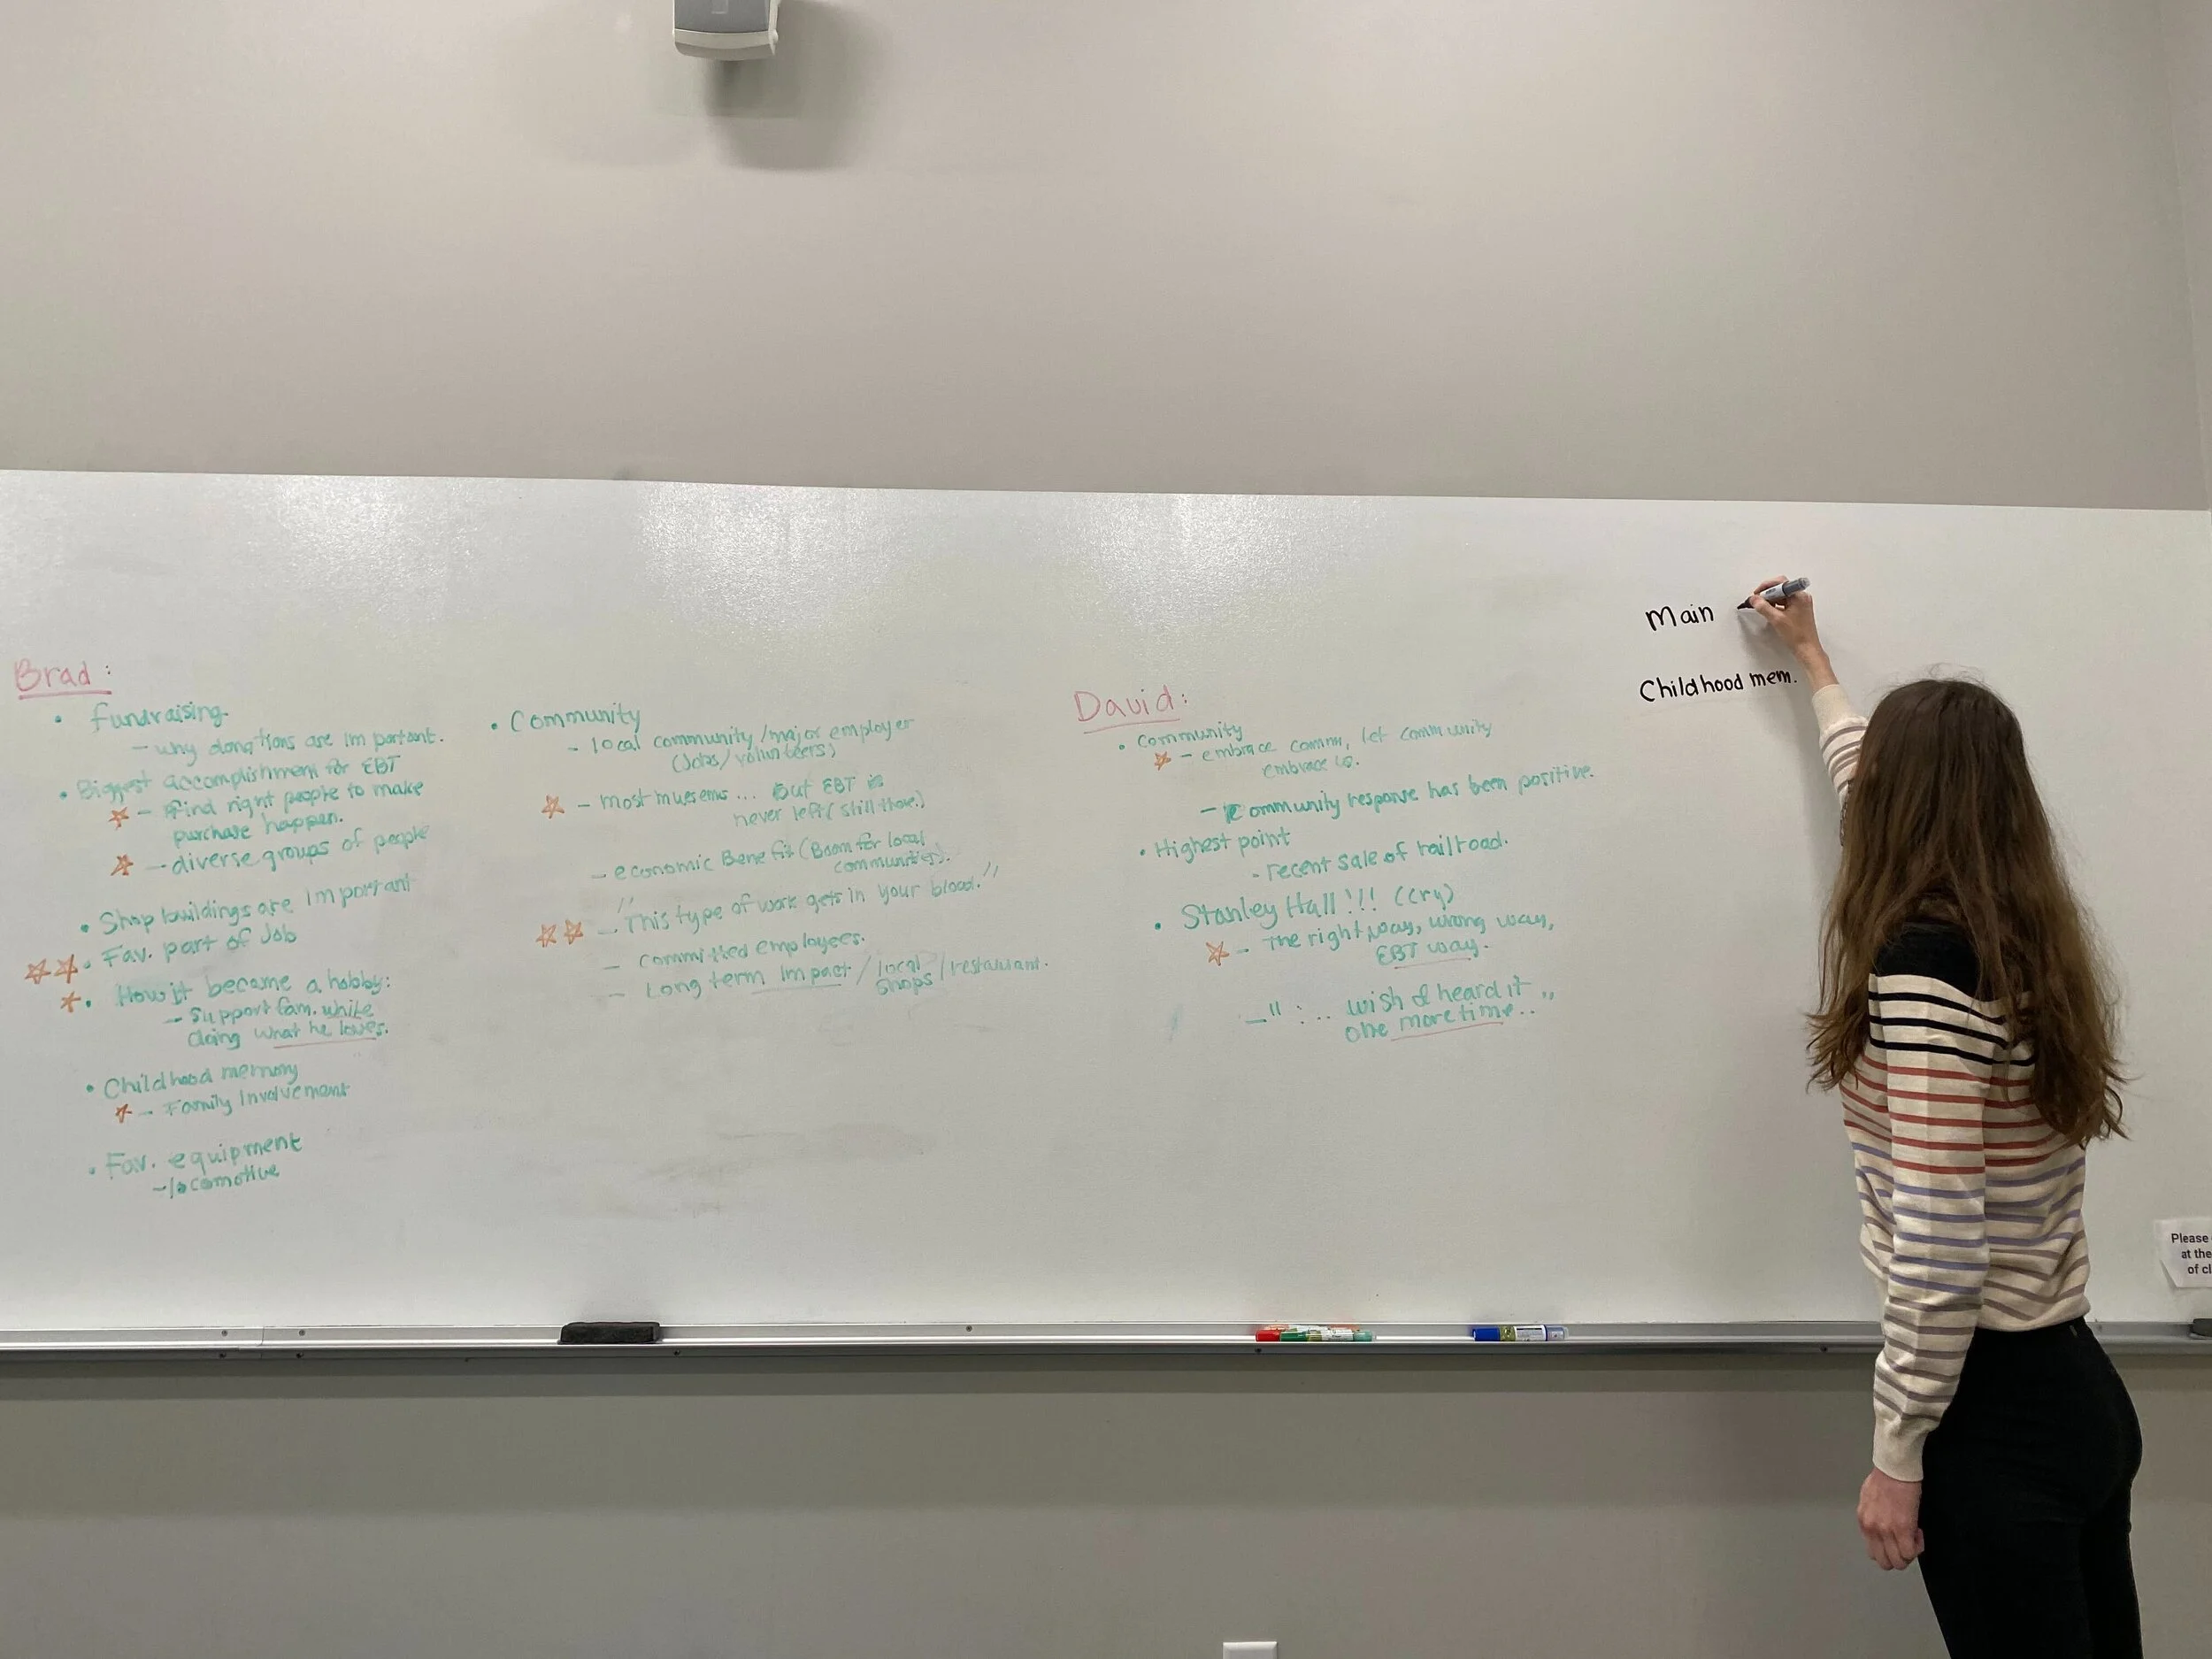 Brad:
• Fundraising
- why donations are important.
• Biggest accomplishment for EBT
☆ - Find right people to make
purchase happen.
☆ - diverse groups of people
• Shop buildings are important
☆☆• Fav. part of Job
☆• How it became a hobby:
- Support fam. while
doing what he loves.
• Childhood memory
☆ - Family Involvement
• Fav. equipment
- locomotive
• Community
- local community/major employer
(Jobs/volunteers)
☆ - most muesems... But EBT is
never left (still there.)
- economic Benefit (Boom for local
communities).
☆☆ - "This type of work gets in your blood."
- committed employees.
- Long term impact / local
shops / restaurant.
David:
• Community
☆ - embrace comm, let community
embrace us.
- Community response has been positive.
• Highest point
- recent sale of railroad.
• Stanley Hall!!! (cry)
☆ - The right way, wrong way,
EBT way.
- "... wish I heard it
one more time..."
Main
Childhood mem.
Please
at the
of cl